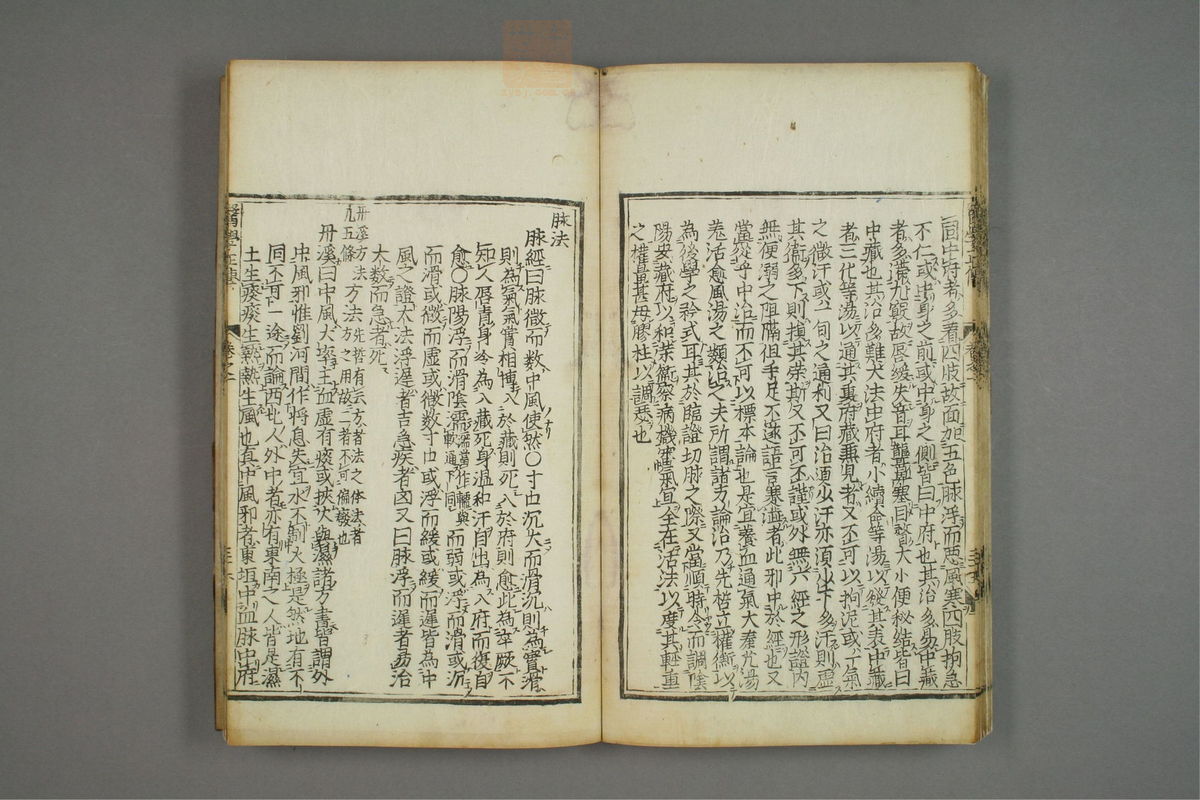 固中府者多着四肢故面加五色脉浮而惡風寒四肢拘急
不仁或中身之前或中身之側皆曰中府也其治多易中藏
者多滯九竅故唇緩失音耳聾鼻塞目瞀大小便秘結皆曰
中藏也其治多難大法中府者小續命等湯以發其表中藏
者三化等湯以通其裏府藏兼見者又不可以拘泥或一氣
之微汗或一旬之通利又曰治須少汗亦須少下多汗則虛
其衛多下則損其榮斯又不可不謹或外無六經之形證內
無便溺之阻隔但手足不遂語言蹇澁者此邪中於經也又
當從乎中治而不可以標本論也是宜養血通氣大秦艽湯
羌活愈風湯之類治之夫所謂諸方論治乃先哲立權衡以
為後學之矜式耳其於臨證切脉之際又當順時令而調陰
陽安藏府以和榮衛察病機審氣宜全在活法以度其輕重
之權量甚毋膠柱以調瑟也
脉法
脉經曰脉微而數中風使然○寸口沉大而滑沉則為實滑
則為氣氣實相搏入於藏則死入於府則愈此為卒厥不
知人唇青身冷為入藏死身溫和汗自出為入府而復自
愈○脉陽浮而滑陰濡濡當作軟與軟通下同而弱或浮而滑或沉
而滑或微而虛或微數寸口或浮而緩或緩而遲皆為中
風之證大法浮遲者吉急疾者凶又曰脉浮而遲者易治
大數而急者死
丹溪方法方法先哲有云方者法之体法者
九五條方之用故二者不可偏廢也
丹溪曰中風大率主血虛有痰或挾火與濕諸方書皆謂外
中風邪惟劉河間作將息失宜水不制火極是然地有不
同不可一途而論西北人外中者亦有東南之人皆是濕
土生痰痰生熱熱生風也真中風邪者東垣中血脉中府
醫學正傳
卷之一